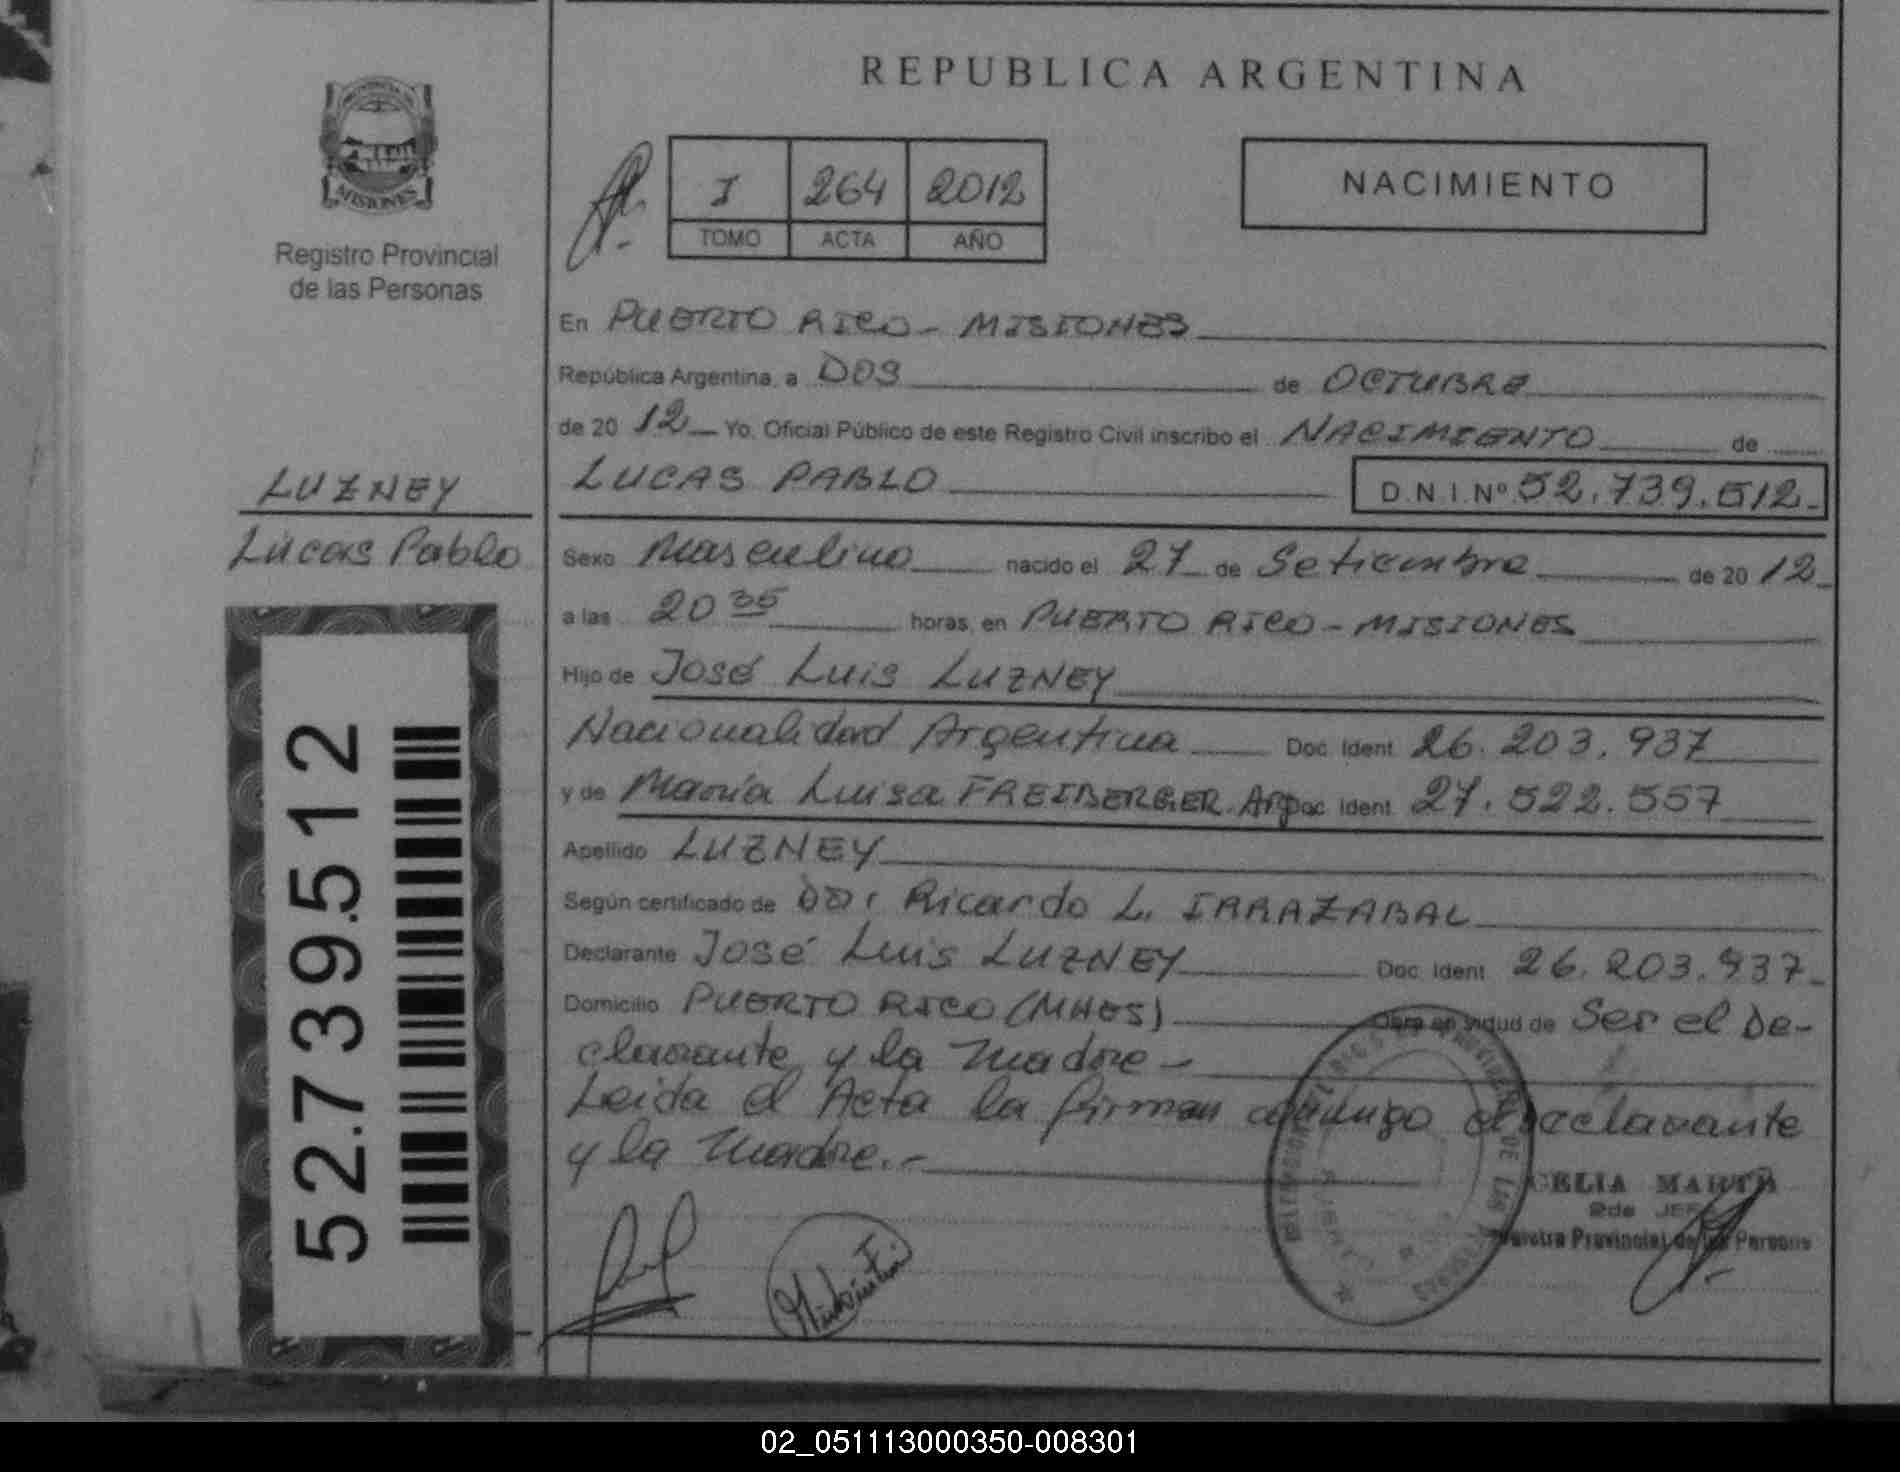 REPUBLICA ARGENTINA
MISIONES
Registro Provincial
de las Personas
I 264 2012
TOMO ACTA AÑO
NACIMIENTO
En PUERTO RICO - MISIONES
República Argentina, a DOS de OCTUBRE
de 20 12 Yo, Oficial Público de este Registro Civil inscribo el NACIMIENTO de
LUCAS PABLO D.N.I.Nº 52.739.512.
LUZNEY
Lucas Pablo
52.739.512
Sexo Masculino nacido el 27 de Setiembre de 20 12
a las 20 35 horas, en PUERTO RICO - MISIONES
Hijo de José Luis LUZNEY
Nacionalidad Argentina Doc. Ident. 26.203.937
y de María Luisa FREIBERGER Arg Doc. Ident. 27.522.557
Apellido LUZNEY
Según certificado de DD: Ricardo L. IRRAZABAL
Declarante José Luis LUZNEY Doc. Ident. 26.203.937
Domicilio PUERTO RICO (MNES) Obra en virtud de Ser el De-
clarante y la Madre -
Leida el Acta la firman conmigo el Declarante
y la Madre.-
CELIA MARTA
2da JEFA
Registro Provincial de las Personas
02_051113000350-008301